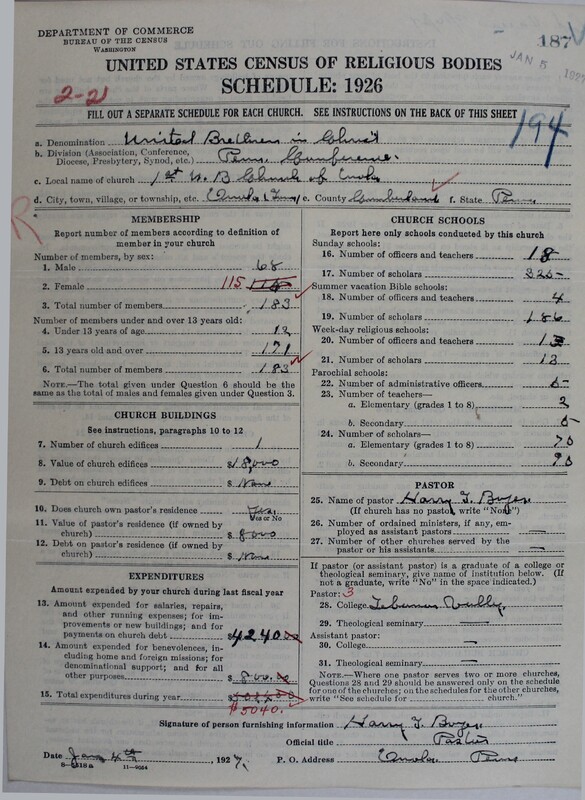 DEPARTMENT OF COMMERCE
BUREAU OF THE CENSUS
WASHINGTON
187
JAN 5
UNITED STATES CENSUS OF RELIGIOUS BODIES
SCHEDULE: 1926
2-21
FILL OUT A SEPARATE SCHEDULE FOR EACH CHURCH. SEE INSTRUCTIONS ON THE BACK OF THIS SHEET
194
a. Denomination United Brethren in Christ
b. Division (Association, Conference, Diocese, Presbytery, Synod, etc.) Penn. Conference.
c. Local name of church 1st U. B Church of Enola
d. City, town, village, or township, etc. Enola e. County Cumberland f. State Penn.
R
MEMBERSHIP
Report number of members according to definition of member in your church
Number of members, by sex:
1. Male 68
2. Female 115
3. Total number of members 183
Number of members under and over 13 years old:
4. Under 13 years of age 12
5. 13 years old and over 171
6. Total number of members 183
NOTE.—The total given under Question 6 should be the same as the total of males and females given under Question 3.
CHURCH BUILDINGS
See instructions, paragraphs 10 to 12
7. Number of church edifices 1
8. Value of church edifices $18,000
9. Debt on church edifices $ None
10. Does church own pastor's residence Yes
Yes or No
11. Value of pastor's residence (if owned by church) $ 8000
12. Debt on pastor's residence (if owned by church) $ None
EXPENDITURES
Amount expended by your church during last fiscal year
13. Amount expended for salaries, repairs, and other running expenses; for improvements or new buildings; and for payments on church debt $4240.
14. Amount expended for benevolences, including home and foreign missions; for denominational support; and for all other purposes $ 800.
15. Total expenditures during year
$5040.
CHURCH SCHOOLS
Report here only schools conducted by this church
Sunday schools:
16. Number of officers and teachers 18
17. Number of scholars 325
Summer vacation Bible schools:
18. Number of officers and teachers 4
19. Number of scholars 186
Week-day religious schools:
20. Number of officers and teachers
21. Number of scholars 13
Parochial schools:
22. Number of administrative officers
23. Number of teachers—
a. Elementary (grades 1 to 8) 2
b. Secondary
24. Number of scholars—
a. Elementary (grades 1 to 8) 70
b. Secondary 90
PASTOR
25. Name of pastor Harry T.
(If church has no pastor, write "None")
26. Number of ordained ministers, if any, employed as assistant pastors —
27. Number of other churches served by the pastor or his assistants —
If pastor (or assistant pastor) is a graduate of a college or theological seminary, give name of institution below. (If not a graduate, write "No" in the space indicated.)
Pastor: 3
28. College Lebanon Valley
29. Theological seminary —
Assistant pastor:
30. College —
31. Theological seminary —
NOTE.—Where one pastor serves two or more churches, Questions 28 and 29 should be answered only on the schedule for one of the churches; on the schedules for the other churches, write "See schedule for church."
Signature of person furnishing information Harry T.
Official title Pastor
Date Jan 4th, 1927. P. O. Address Enola Penn
11—9024